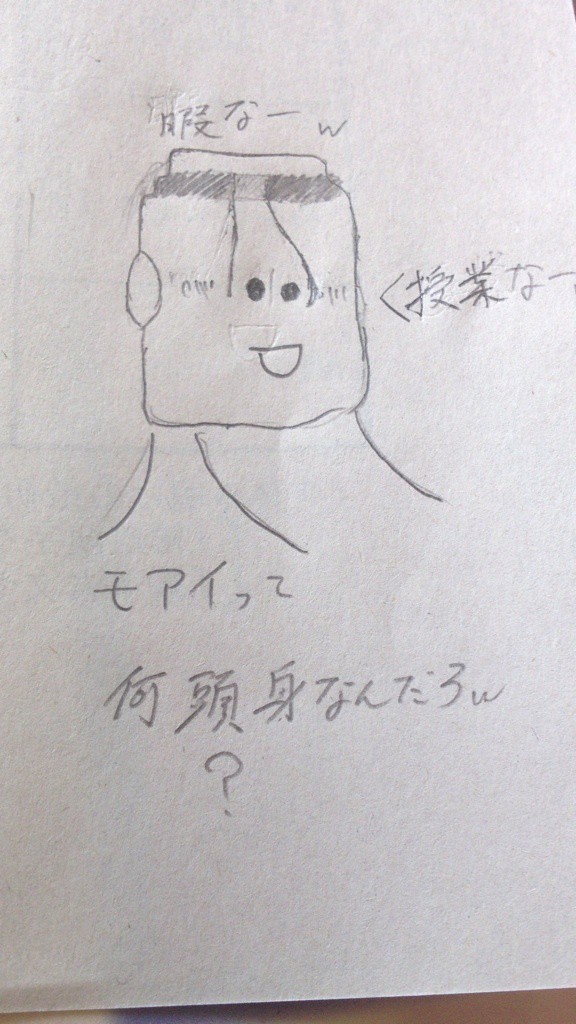 暇なーw
く授業なー
モアイって
何頭身なんだろw
?